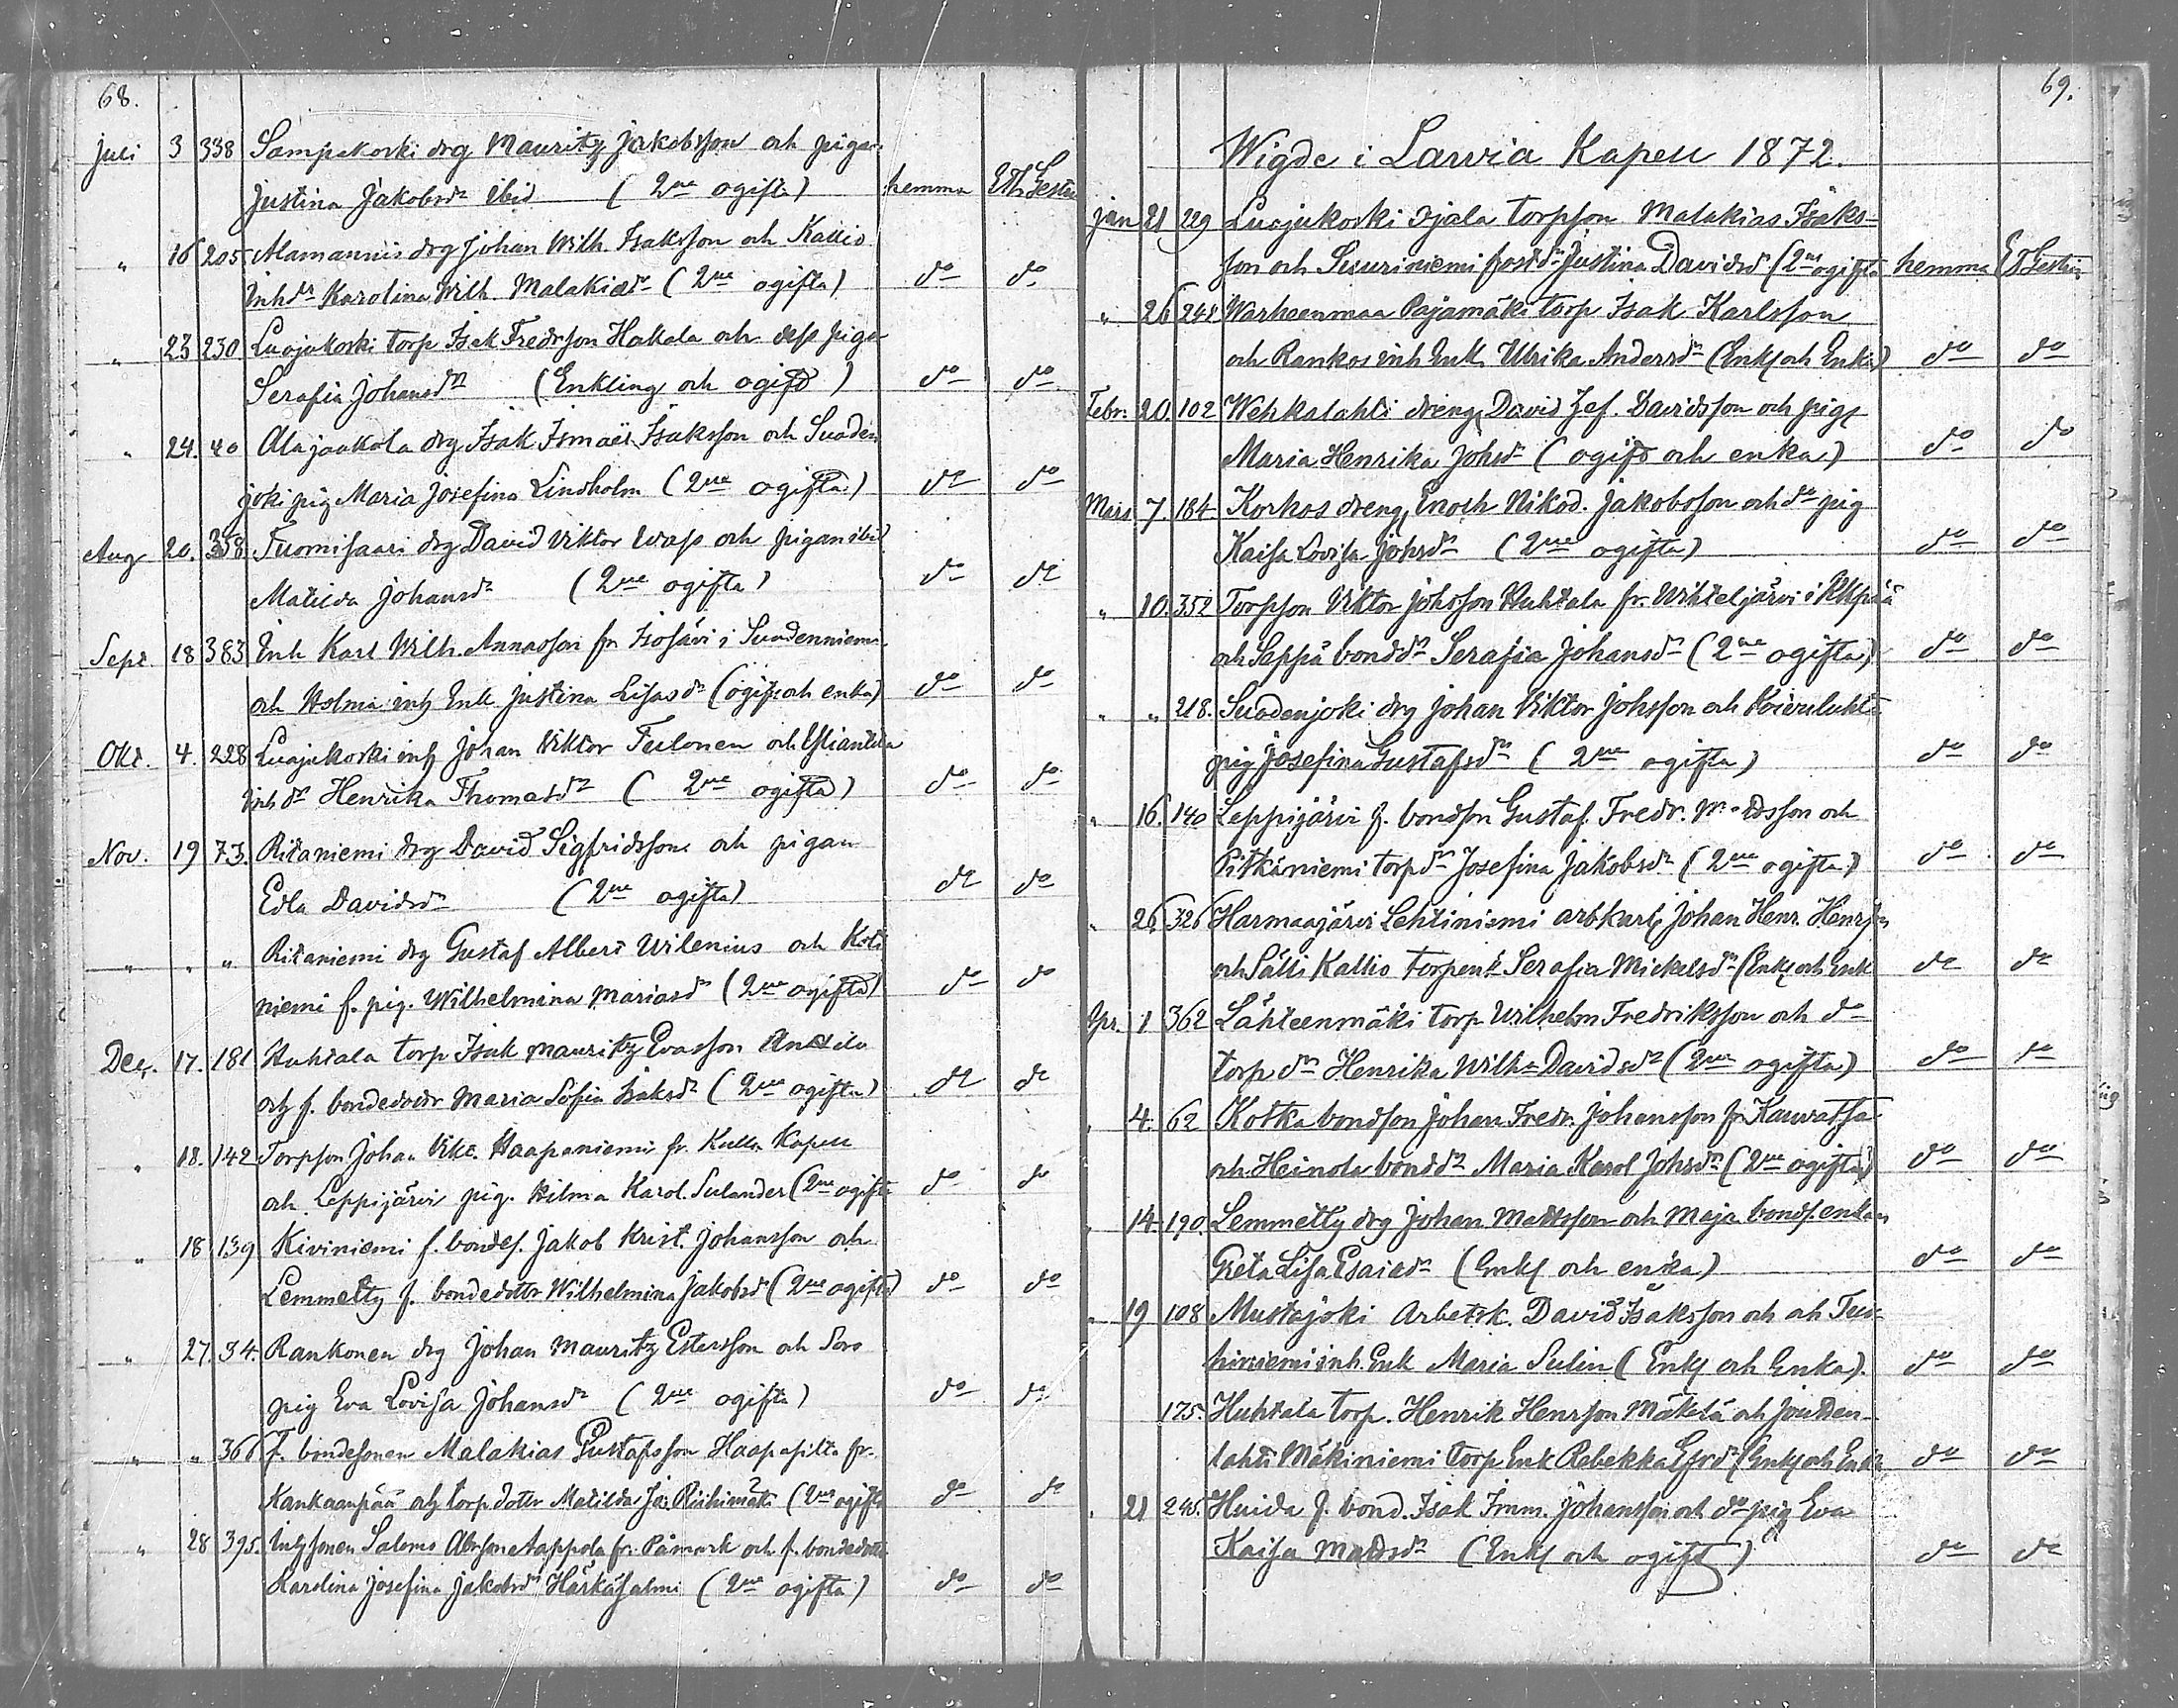 68.
Juli 3 338 Sampakoski drg Mauritz Jakobsson och pigan
Justina Jakobsdr ibid (2ne ogifta) hemma
" 16 205 Alamannis drg Johan Wilh. Isaksson och Kallio
Inhdr Karolina Wilh. Malakiedr (2ne ogifta) do do
" 23 230 Luojukoski torp Isak Fredrsson Hakala och dess piga
Serafia Johansdr (Enkling och ogift) do do
" 24. 40 Alajaakola drg Isak Ismael Isaksson och Suoden
joki pig Maria Josefina Lindholm (2ne ogifta) do do
Aug 20. 358. Tuomisaari drg David Viktor Wass och pigan ibid
Matilda Johansdr (2ne ogifta) do do
Sept 18 383 Inh Karl Wilh. Annasson fr Isosävi i Suodenniemi
och Holma inh Enk Justina Lisasdr (ogift och enka) do do
Okt. 4. 228 Luojukoski inh Johan Viktor Teilonen och
Inhdr Henrika Thomasdr (2ne ogifta) do do
Nov. 19 73. Ritaniemi drg David Sigfridsson och pigan
Edla Davidsdr (2ne ogifta) do do
" " " Ritaniemi drg Gustaf Albert Wilenius och Koti
niemi f. pig. Wilhelmina Mariasdr (2ne ogifta) do do
Dec. 17. 181 Huhtala torp Isak Mauritz Evasson Anttila
och f. bondedotr Maria Sofia Isaksdr (2ne ogifta) do do
" 18. 142 Torpson Johan Vikt. Haapaniemi fr. Kulla Kapell
och Leppijärvi pig. Hilma Karol. Sulander (2ne ogifta do do
" 18 139 Kiviniemi f. bondes. Jakob Krist. Johansson och
Lemmetty f. bondedottr Wilhelmina Jakobsdr (2ne ogifta) do do
" 27. 34. Rankonen drg Johan Mauritz Estersson och Soro
pig Eva Lovisa Johansdr (2ne ogifta) do do
" " 366 f. bondesonen Malakias Gustafsson Haapasilta fr.
Kankaanpää och torp.dottr Matilda Jos. Riihimäki (2ne ogifta do do
" 28 395. Inhsonen Salomo Abrson Aappola fr. Påmark och f. bondedottr
Karolina Josefina Jakobsdr Härkäsalmi (2ne ogifta) do do
69.
Wigde i Lavia Kapell 1872.
Jan 21 229 Luojukoski Ojala torpson Malakias Isaks-
son och Suuriniemi Justina Davidsdr (2ne ogifta hemma
" 26 248 Warheenmaa Pajamäki torp Isak Karlsson
och Rankos inh Enk. Ulrika Andersdr (Enkl och Enka) do do
Febr. 20. 102 Wehkalahti dreng David Zef. Davidsson och pig
Maria Henrika Johsdr (ogift och enka) do do
Mars 7. 184. Korkos dreng Enoch Nikod. Jakobsson och do pig
Kaisa Lovisa Johsdr (2ne ogifta) do do
" 10. 352 Torpson Viktor Johsson Huhtala fr. Wihteljärvi i
och Seppä bonddr Serafia Johansdr (2ne ogifta) do do
" " 218. Suodenjoki drg Johan Viktor Johsson och
pig Josefina Gustafsdr (2ne ogifta) do do
" 16. 140 Leppijärvi f. bondson Gustaf Fredr. och
Pitkäniemi torpdr Josefina Jakobsdr (2ne ogifta) do do
" 26 326 Harmaajärvi Lehtiniemi arbkarl Johan Henr. Henrsson
och Sälli Kallio torpenk Serafia Mickelsdr (Enkl och Enk do do
Apr. 1 362 Lähteenmäki torp Wilhelm Fredriksson och do
torpdr Henrika Wilha Davidsdr (2ne ogifta) do do
" 4. 62 Kotka bondson Johan Fredr. Johansson fr Kauvatsa
och Heinola bonddr Maria Karol Johsdr (2ne ogifta) do do
" 14. 190. Lemmetty drg Johan Mattsson och Maja bonds.enkan
Greta Lisa Esaiedr (Enkl och enka) do do
" 19 108 Mustajoki Arbetsk. David Isaksson och
niemi inh. Enk Maria Sulin (Enkl och Enka). do do
175. Huhtala torp. Henrik Henrsson Mäkelä och
lahti Mäkiniemi torp Enk Rebekka (Enkl och Enka do do
" 21 245. Huida f. bond. Isak Imm. Johansson och do pig Eva
Kaisa Mattsdr (Enkl och ogift) do do